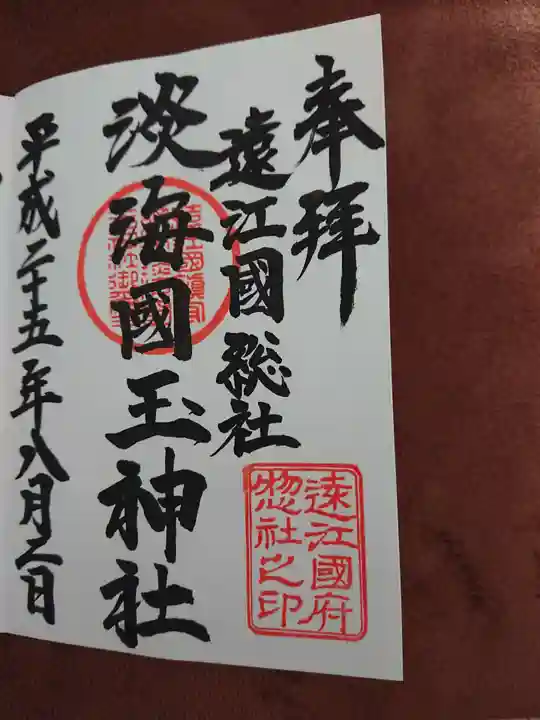 奉拝
遠江國総社
淡海國玉神社
平成二十五年八月二日
遠江國府
惣社之印